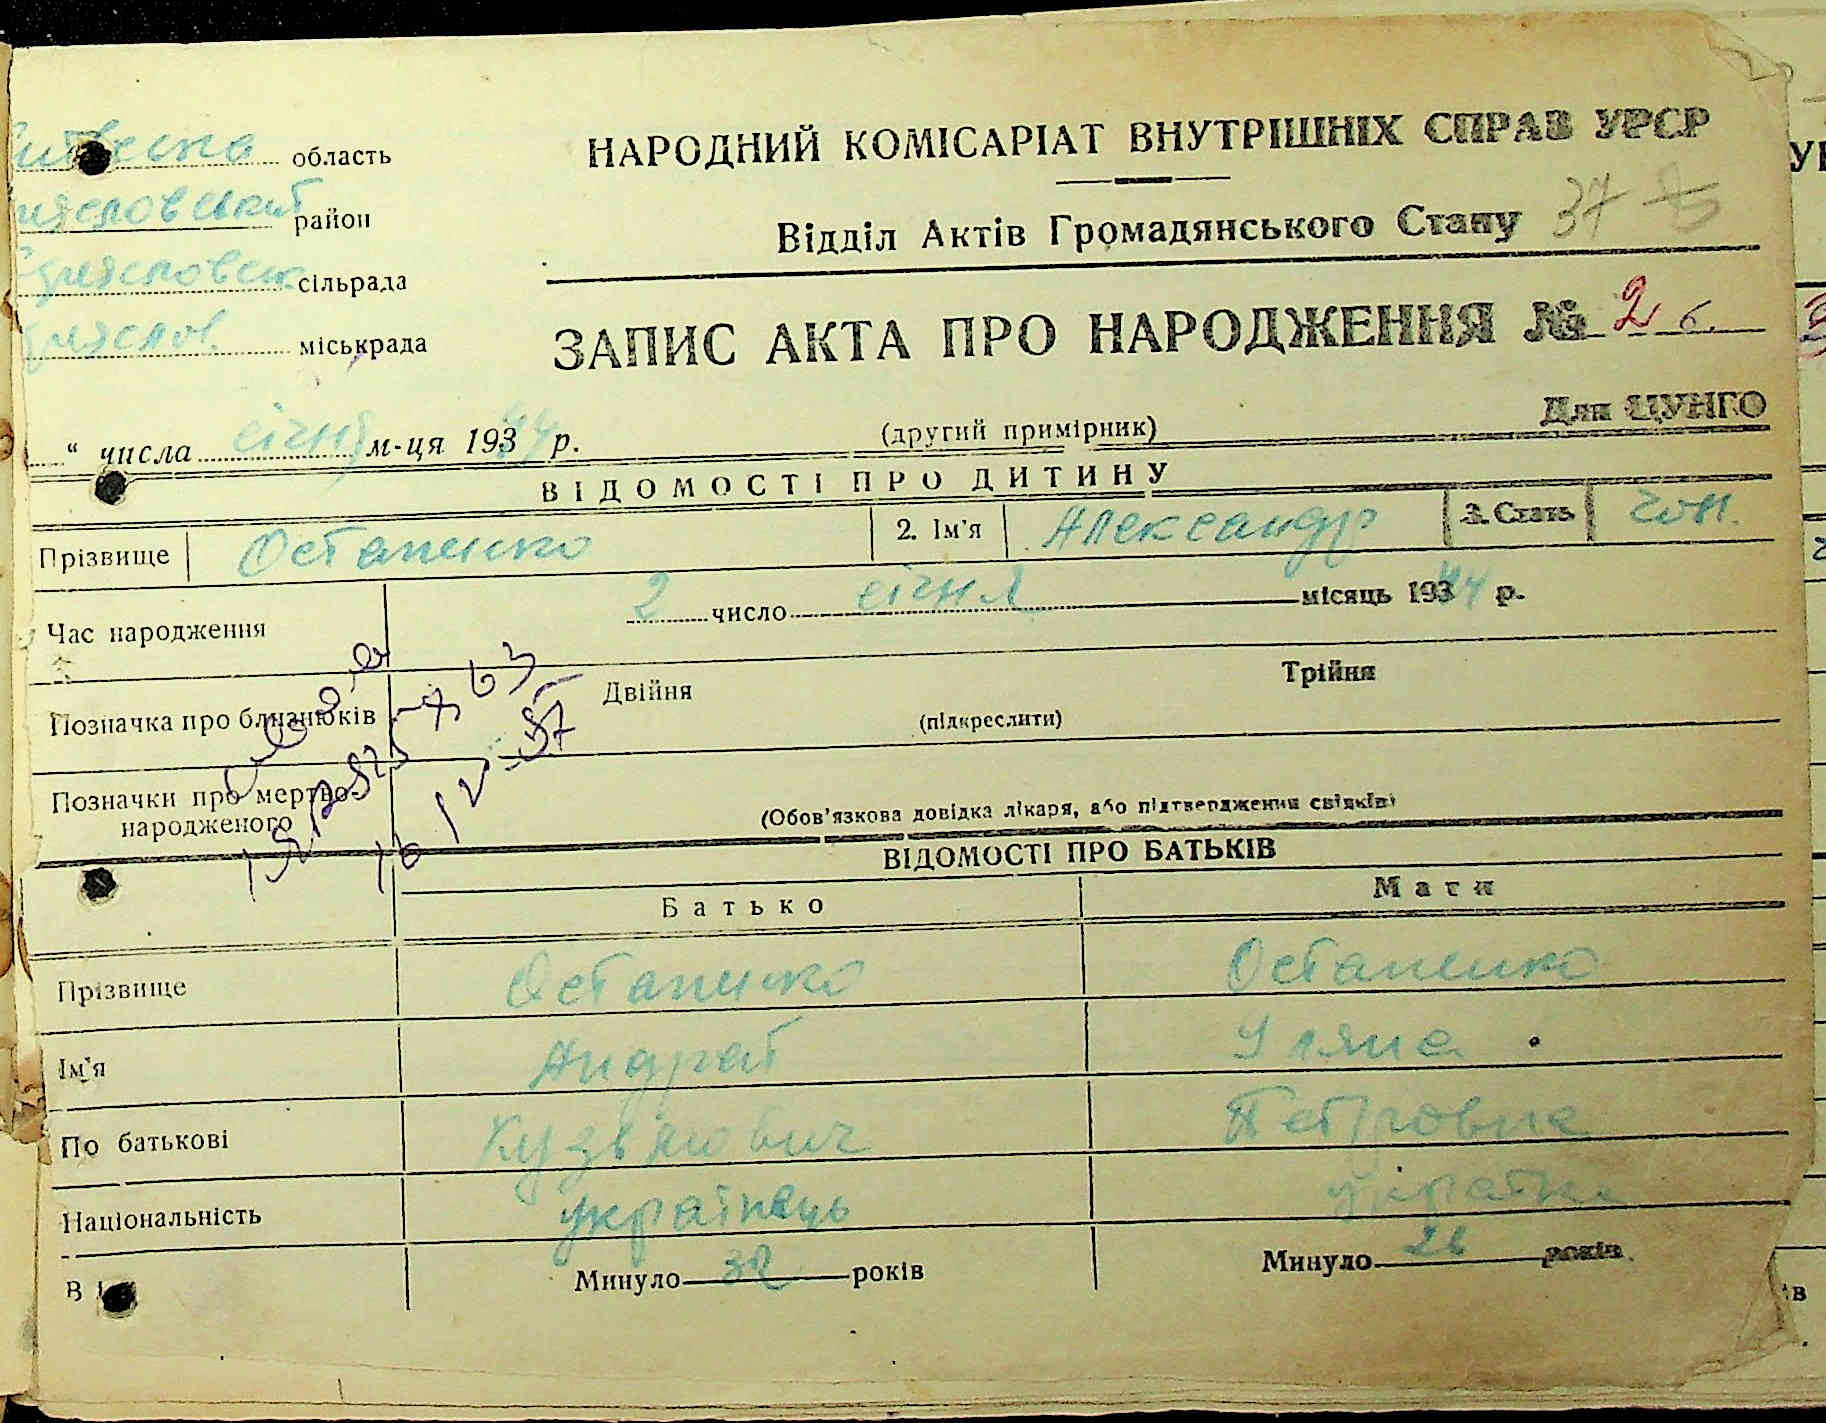 область
НАРОДНИЙ КОМІСАРІАТ ВНУТРІШНІХ СПРАВ УРСР
район
Відділ Актів Громадянського Стану 37
сільрада
ЗАПИС АКТА ПРО НАРОДЖЕННЯ № 26.
міськрада
Для ЦУНГО
(другий примірник)
“ числа січня м-ця 19344 р.
ВІДОМОСТІ ПРО ДИТИНУ
Прізвище Остапенко 2. Ім'я Александр 3. Стать чол.
Час народження 2 число січня місяць 19344 р.
Позначка про близнюків Двійня Трійня
(підкреслити)
Позначки про мертво-
народженого
(Обов'язкова довідка лікаря, або підтвердження свідків)
ВІДОМОСТІ ПРО БАТЬКІВ
Батько Мати
Прізвище Остапенко Остапенко
Ім'я Андрей Уляна
По батькові Кузьмович Петровна
Національність українець українка
Минуло 32 років Минуло 26 років